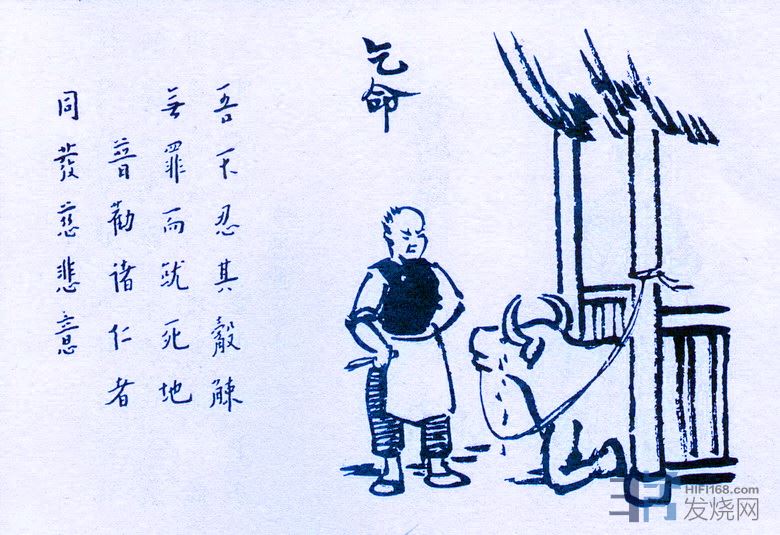 乞命
吾不忍其觳觫
無罪而就死地
普勸諸仁者
同發慈悲意
HIFI168.com
发烧网